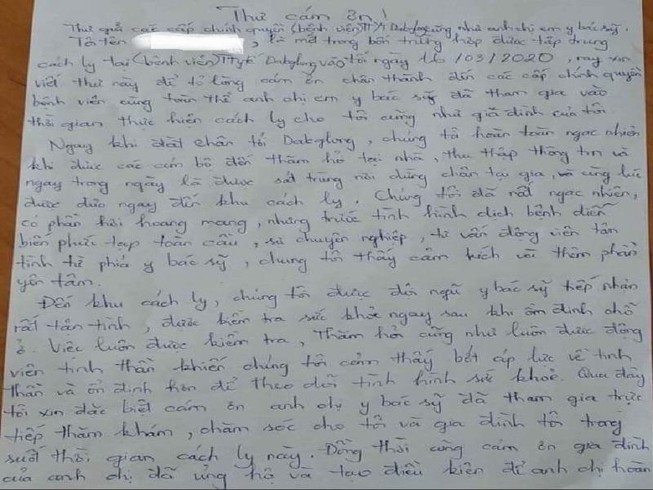 Thư cám ơn!
Thư gửi các cấp chính quyền (bệnh viện TTYT Dakglong cũng như anh chị em y bác sỹ.
Tôi tên , là một trong bốn trường hợp được tập trung
cách ly tại (bệnh viện) TTYT Dakglong vào tối ngày 16/03/2020, nay xin
viết thư này để tỏ lòng cám ơn chân thành đến các cấp chính quyền
bệnh viện cùng toàn thể anh chị em y bác sỹ đã tham gia vào
thời gian thực hiện cách ly cho tôi cũng như gia đình của tôi.
Ngay khi đặt chân tới Dakglong, chúng tôi hoàn toàn ngạc nhiên
khi được các cán bộ đến thăm hỏi tại nhà, thu thập thông tin và
ngay trong ngày là được sát trùng nơi dừng chân tại gia, và cùng lúc
được đưa ngay đến khu cách ly. Chúng tôi đã rất ngạc nhiên,
có phần hơi hoang mang, nhưng trước tình hình dịch bệnh diễn
biến phức tạp toàn cầu, sự chuyên nghiệp, tư vấn động viên tận
tình từ phía y bác sỹ, chúng tôi thấy cảm kích với thêm phần
yên tâm.
Đến khu cách ly, chúng tôi được đội ngũ y bác sỹ tiếp nhận
rất tận tình, được kiểm tra sức khỏe ngay sau khi ổn định chỗ
ở. Việc luôn được kiểm tra, Thăm hỏi cũng như luôn được động
viên tinh thần khiến chúng tôi cảm thấy bớt áp lực về tinh
thần và ổn định hơn để theo dõi tình hình sức khỏe. Qua đây
tôi xin đặc biệt cám ơn anh chị y bác sỹ đã tham gia trực
tiếp thăm khám, chăm sóc cho tôi và gia đình tôi trong
suốt thời gian cách ly này. Đồng thời cũng cám ơn gia đình
của anh chị đã ủng hộ và tạo điều kiện để anh chị hoàn